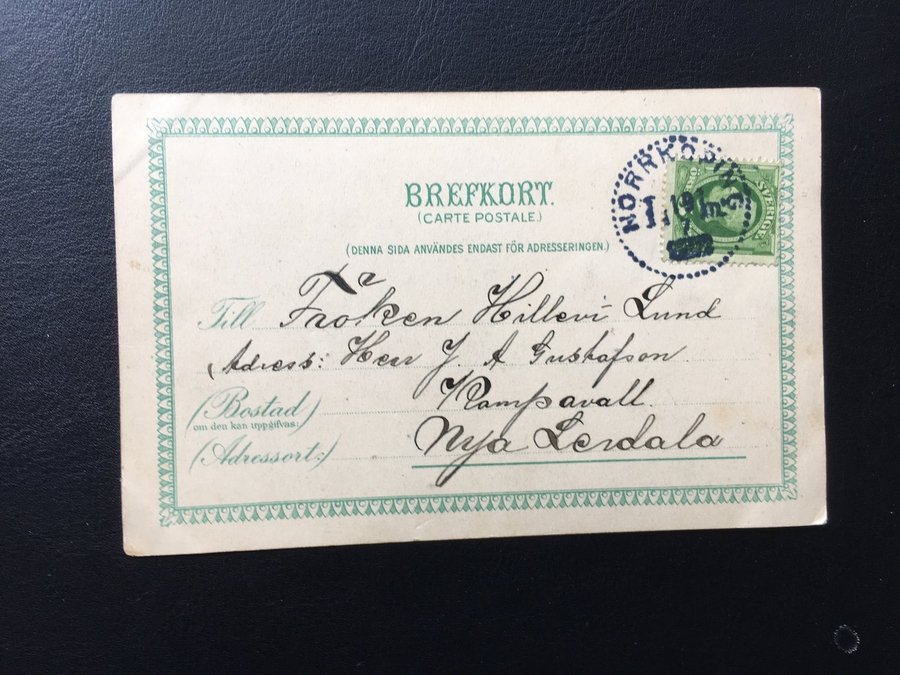 BREFKORT.
(CARTE POSTALE.)
(DENNA SIDA ANVÄNDES ENDAST FÖR ADRESSERINGEN.)
NORRKÖPING
SVERIGE
Till Fröken Hillevi Lund
Adress: Herr J. A Gustafson.
Kampavall.
(Bostad)
om den kan uppgifvas:
Nya Lerdala
(Adressort:)